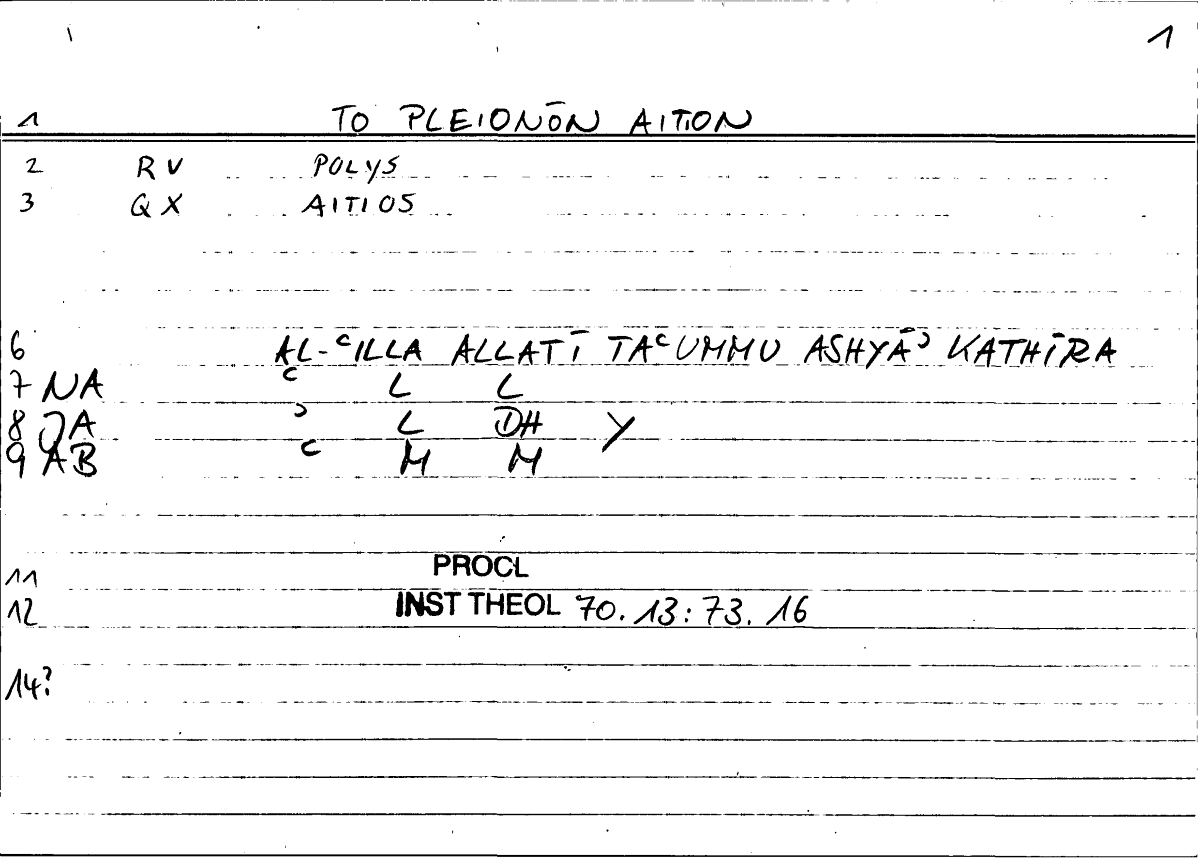 1
1 TO PLEIONŌN AITION
2 RV POLYS
3 QX AITIOS
6 AL-ʿILLA ALLATĪ TAʿUMMU ASHYĀʾ KATHĪRA
7 NA ʿ L L
8 QA ʾ L DH Y
9 AB ʿ M M
11 PROCL
12 INST THEOL 70.13:73.16
14?